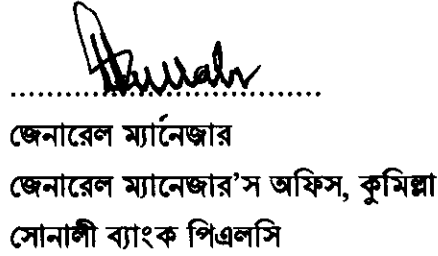 জেনারেল ম্যানেজার
জেনারেল ম্যানেজার’স অফিস, কুমিল্লা
সোনালী ব্যাংক পিএলসি